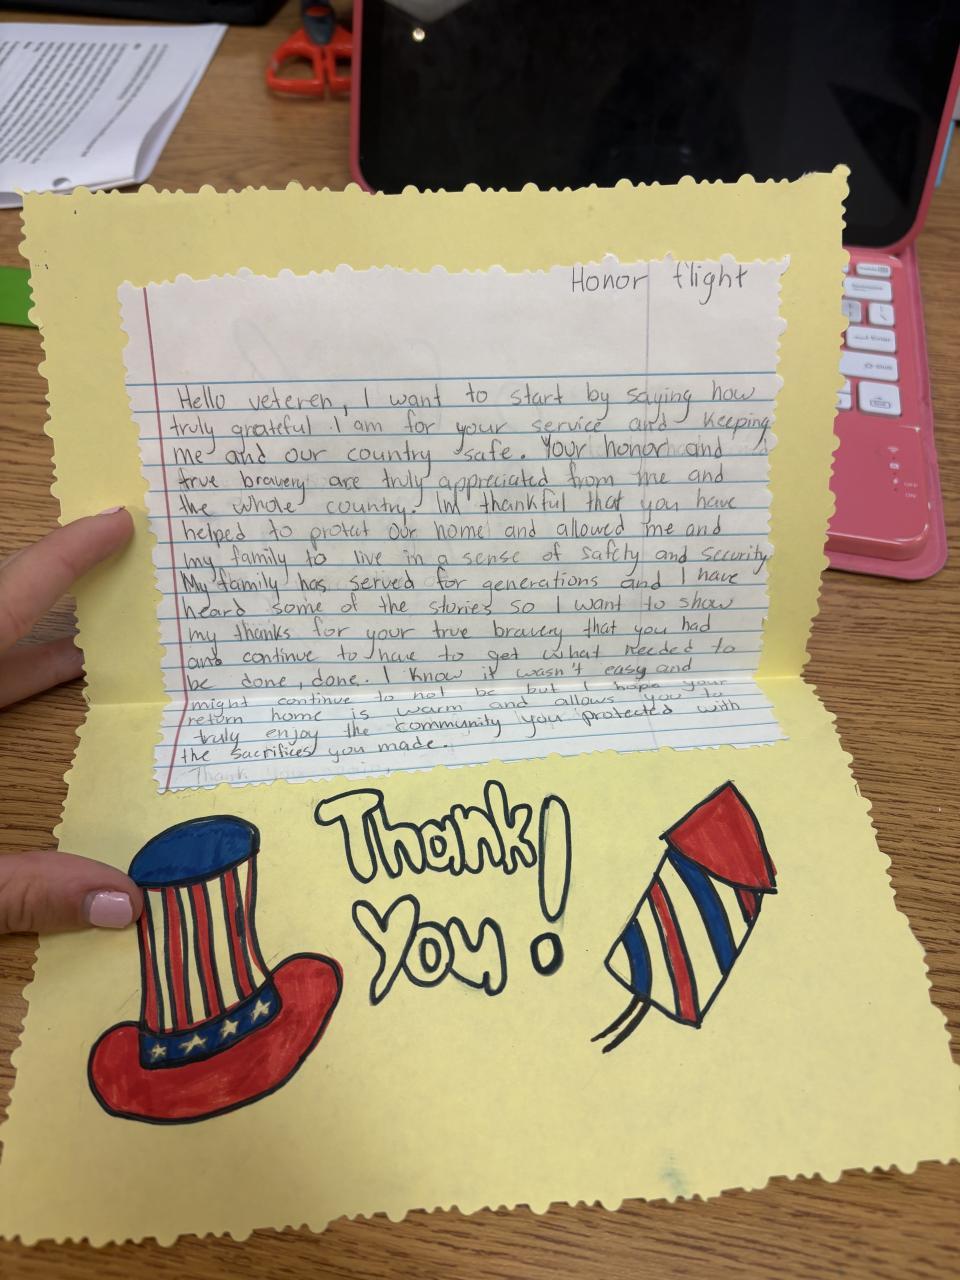 Honor flight
Hello veteren, I want to start by saying how
truly grateful I am for your service and keeping
me and our country safe. Your honor and
true bravery are truly appreciated from me and
the whole country. Im thankful that you have
helped to protect our home and allowed me and
my family to live in a sense of safety and security
My family has served for generations and I have
heard some of the stories so I want to show
my thanks for your true bravery that you had
and continue to have to get what needed to
be done, done. I know it wasn't easy and
might continue to not be but I hope your
return home is warm and allows you to
truly enjoy the community you protected with
the sacrifices you made.
Thank You
Thank
You!